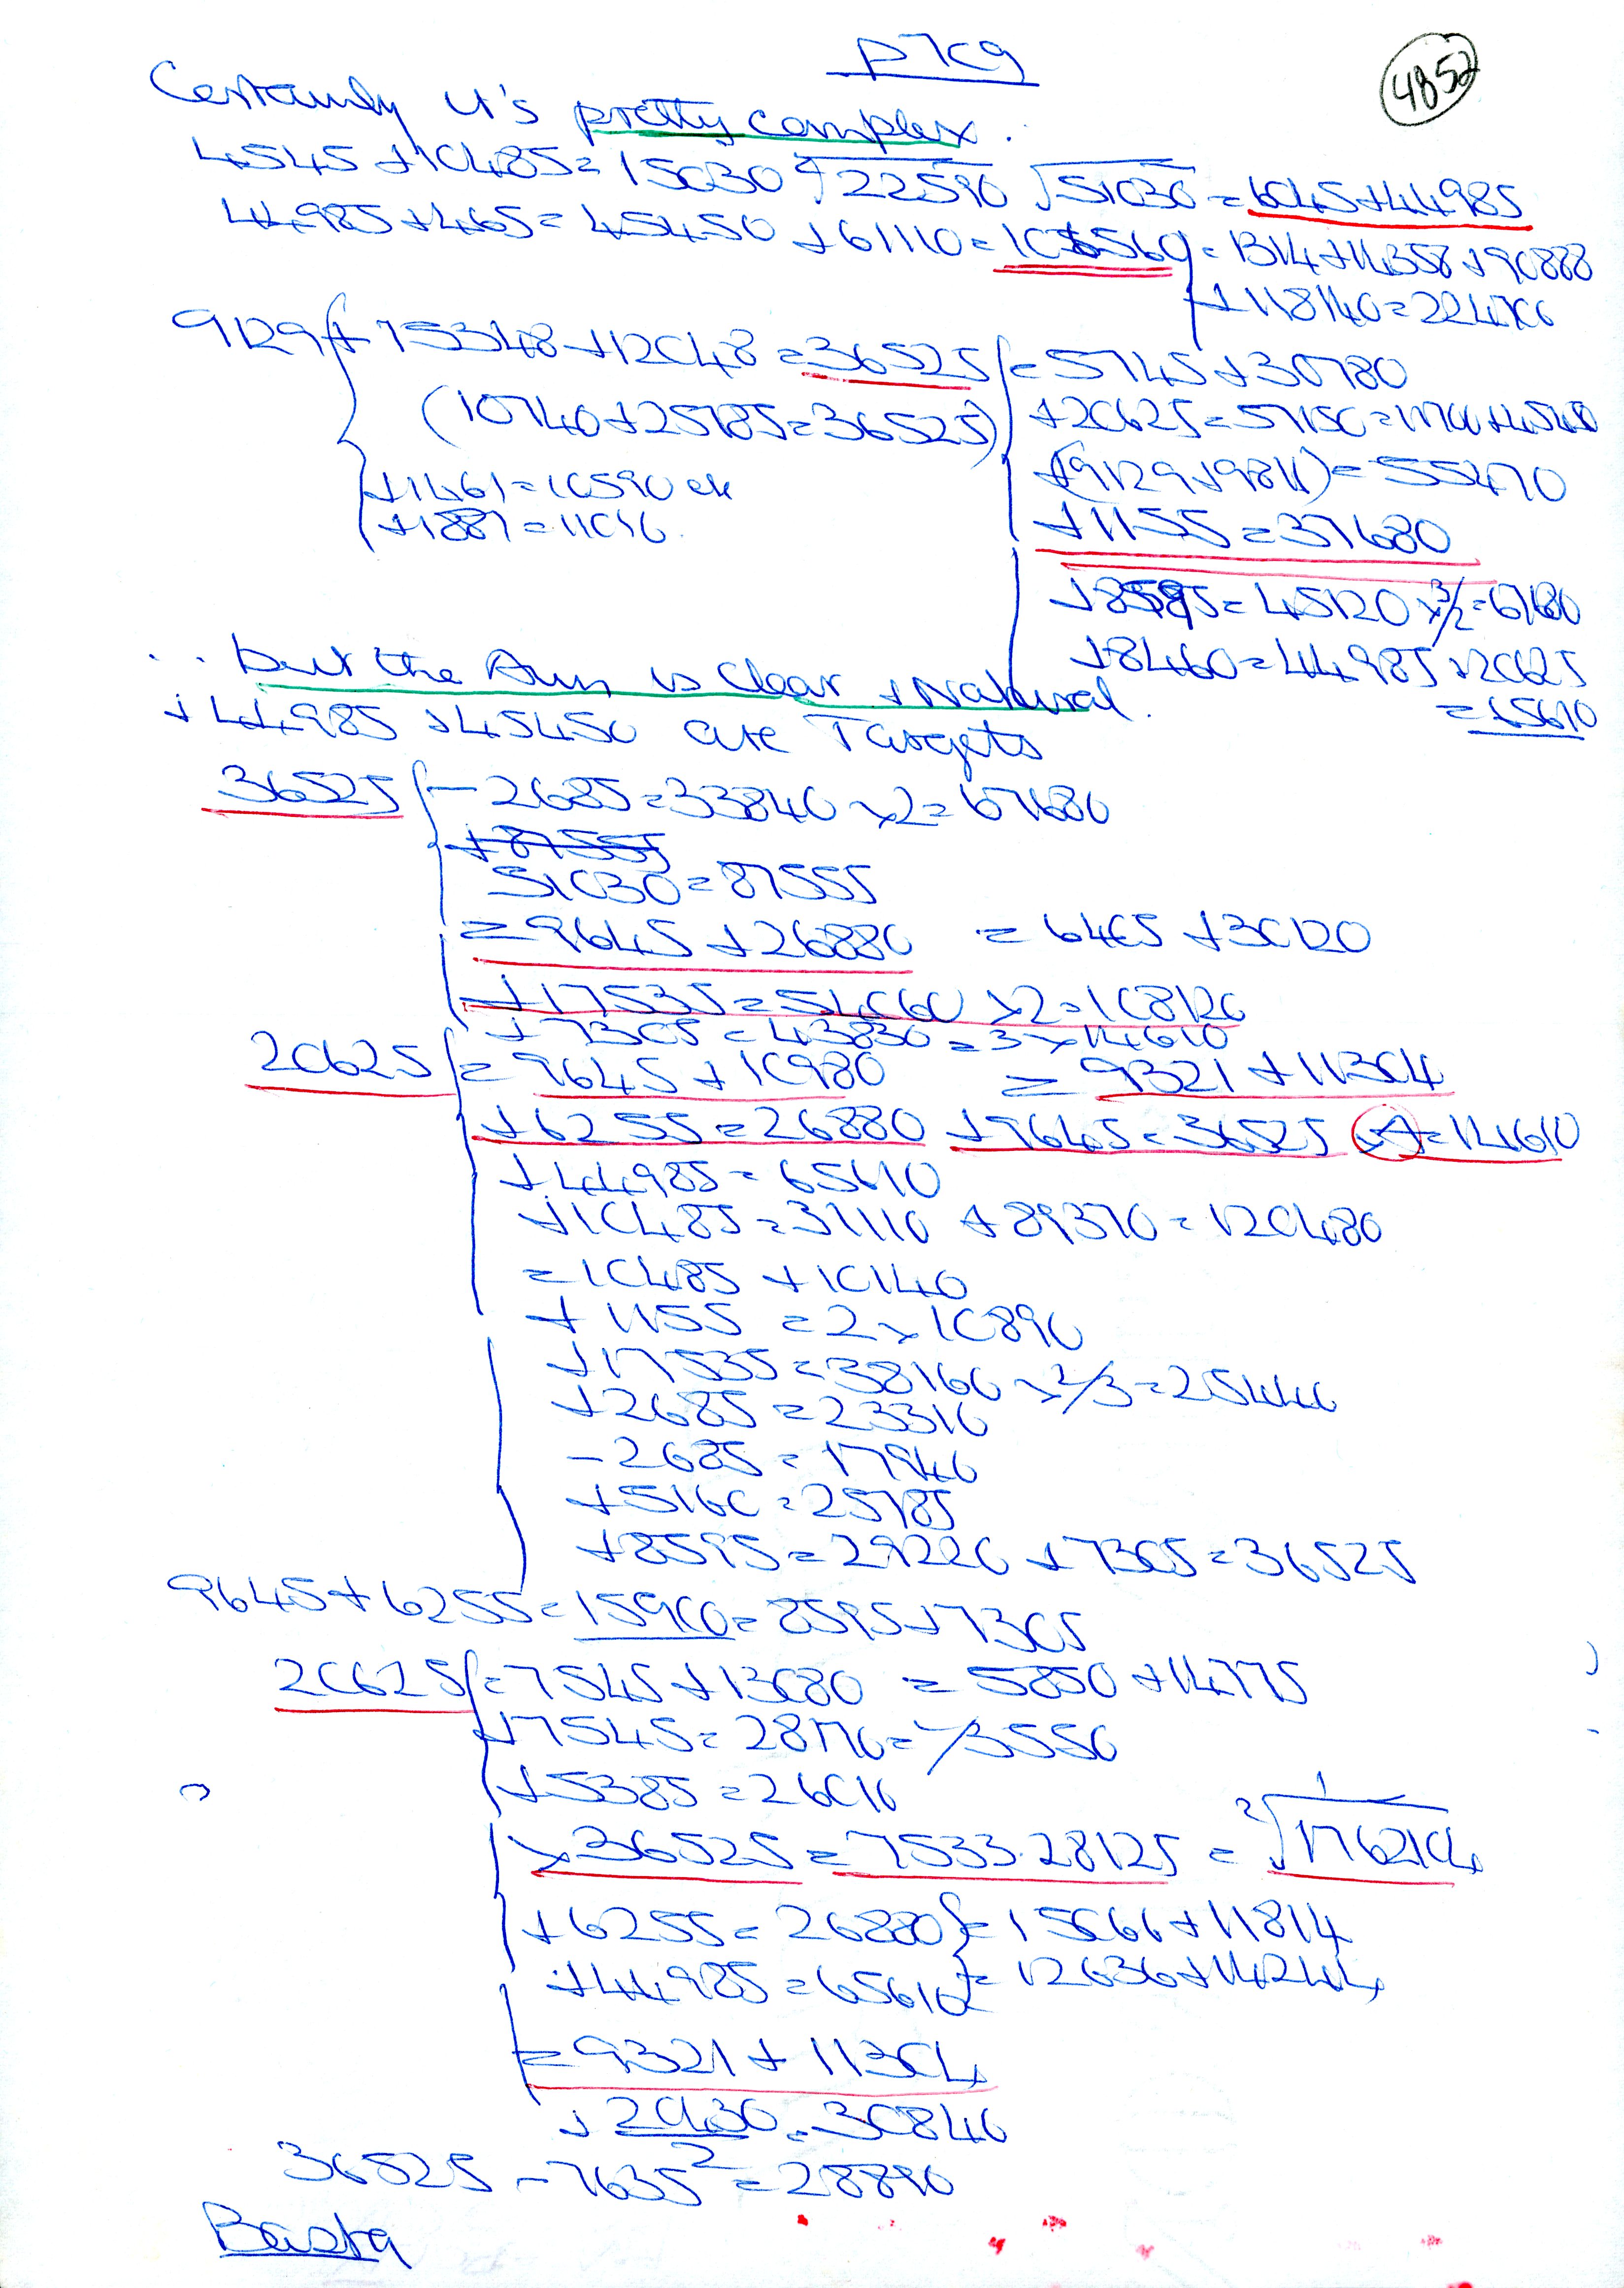 p7c9
4852
Certainly it's pretty complex.
4545 + 10485 = 15030 √22590 √51030 = 6045 + 44985
44985 + 465 = 45450 + 61110 = 106560 = 1314 + 14358 + 90888
+ 118140 = 224700
9129 + 15348 + 12048 = 36525 = 5745 + 30780
(10740 + 25785 = 36525) + 20625 = 57150
+(9129 + 9811) = 55470
+1461 = 10590
+1155 = 37680
+1887 = 11016
+8595 = 45120 × 3/2 = 67680
+8460 = 44985 + 20625
= 65610
.. but the is Clear + Natural.
+ 44985 + 45450 are Targets
36525 - 2685 = 33840 × 2 = 67680
+87555
51030 = 87555
= 9645 + 26880 = 6405 + 30120
+17535 = 54060 × 2 = 108120
+7305 = 43830 = 3 × 14610
20625 = 9645 + 10980 = 9321 + 11304
+6255 = 26880 + 9645 = 36525 = 14610
+44985 = 65610
+10485 = 31110 + 89370 = 120480
= 10485 + 10140
+1155 = 2 × 10890
+17535 = 38160 × 2/3 = 25440
+2685 = 23310
-2685 = 17940
+5160 = 25785
+8595 = 29220 + 7305 = 36525
9645 + 6255 = 15900 = 8595 + 7305
20625 = 7545 + 13080 = 5850 + 14775
+7545 = 28170 =
+5385 = 26010
× 36525 = 7533.28125 =
+6255 = 26880 = 15066 + 11814
+44985 = 65610 = 12636 + 14244
= 9321 + 11304
+ = 30840
36525 - 7635 = 28890
Basta